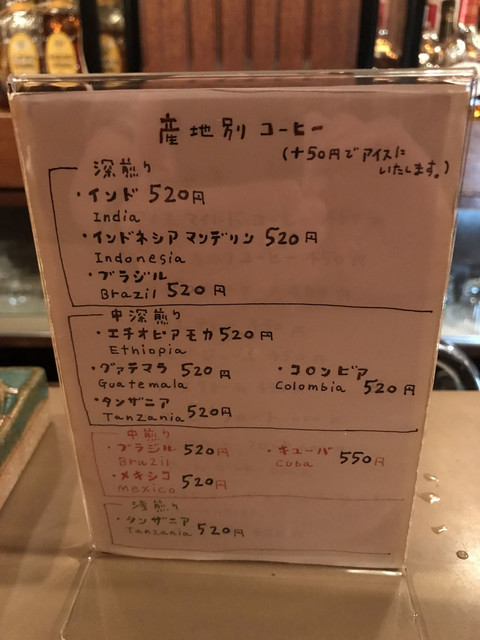 産地別 コーヒー
(+50円でアイスに
いたします。)
深煎り
・インド 520円
India
・インドネシア マンデリン 520円
Indonesia
・ブラジル
Brazil 520円
中深煎り
・エチオピアモカ 520円
Ethiopia
・グァテマラ 520円
Guatemala
・コロンビア
Colombia 520円
・タンザニア
Tanzania 520円
中煎り
・ブラジル 520円
Brazil
・キューバ 550円
Cuba
・メキシコ
mexico 520円
浅煎り
・タンザニア
Tanzania 520円